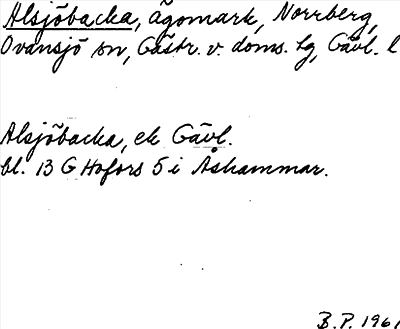 Alsjöbacka, ägomark, Norrberg,
Ovansjö sn, Gästr. v. doms. tg, Gävl. l
Alsjöbacka, ek Gävl.
bl. 13 G Hofors 5 i Åshammar.
B.P. 1961